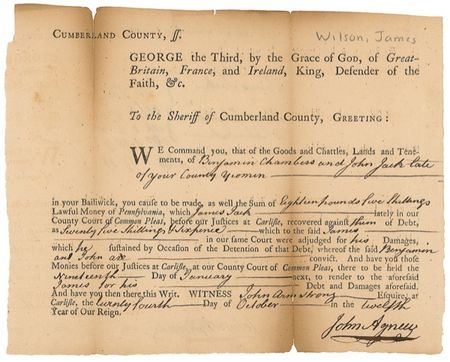 Wilson, James
CUMBERLAND COUNTY, ss.
GEORGE the Third, by the Grace of GOD, of Great-
Britain, France, and Ireland, King, Defender of the
Faith, &c.
To the Sheriff of Cumberland County, GREETING:
WE Command you, that of the Goods and Chattles, Lands and Tene-
ments, of Benjamin Chambers and John Jack late
of your County Yeomen
in your Bailiwick, you cause to be made, as well the Sum of Eighteen pounds five Shillings
Lawful Money of Pennsylvania, which James Jack lately in our
County Court of Common Pleas, before our Justices at Carlisle, recovered against them of Debt,
as Twenty five Shillings & Sixpence which to the said James
in our same Court were adjudged for his Damages,
which he sustained by Occasion of the Detention of that Debt, whereof the said Benjamin
and John are convict. And have you those
Monies before our Justices at Carlisle, at our County Court of Common Pleas, there to be held the
Nineteenth Day of January next, to render to the aforesaid
James for his Debt and Damages aforesaid.
And have you then there this Writ. WITNESS John Armstrong Esquire, at
Carlisle, the twenty fourth Day of October in the twelfth
Year of Our Reign.
John Agnew